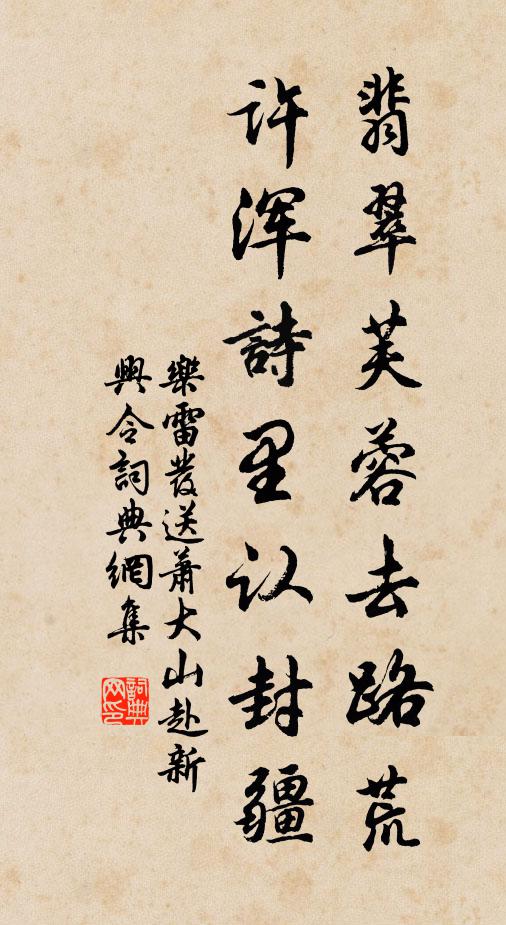 翡翠芙蓉去路荒
许浑詩里认封疆
樂雷發送蕭大山赴新
興令詞典網集
詞典网印